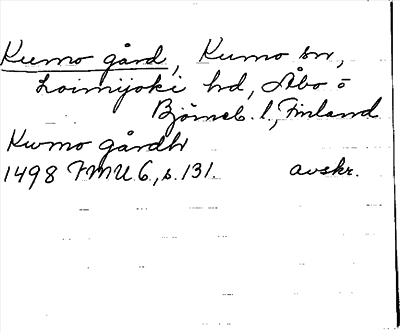 Kumo gård, Kumo sn,
Loimijoki hd, Åbo o
Björneb. l., Finland
Kwmo gårdh
1498 FMU 6, s. 131. avskr.